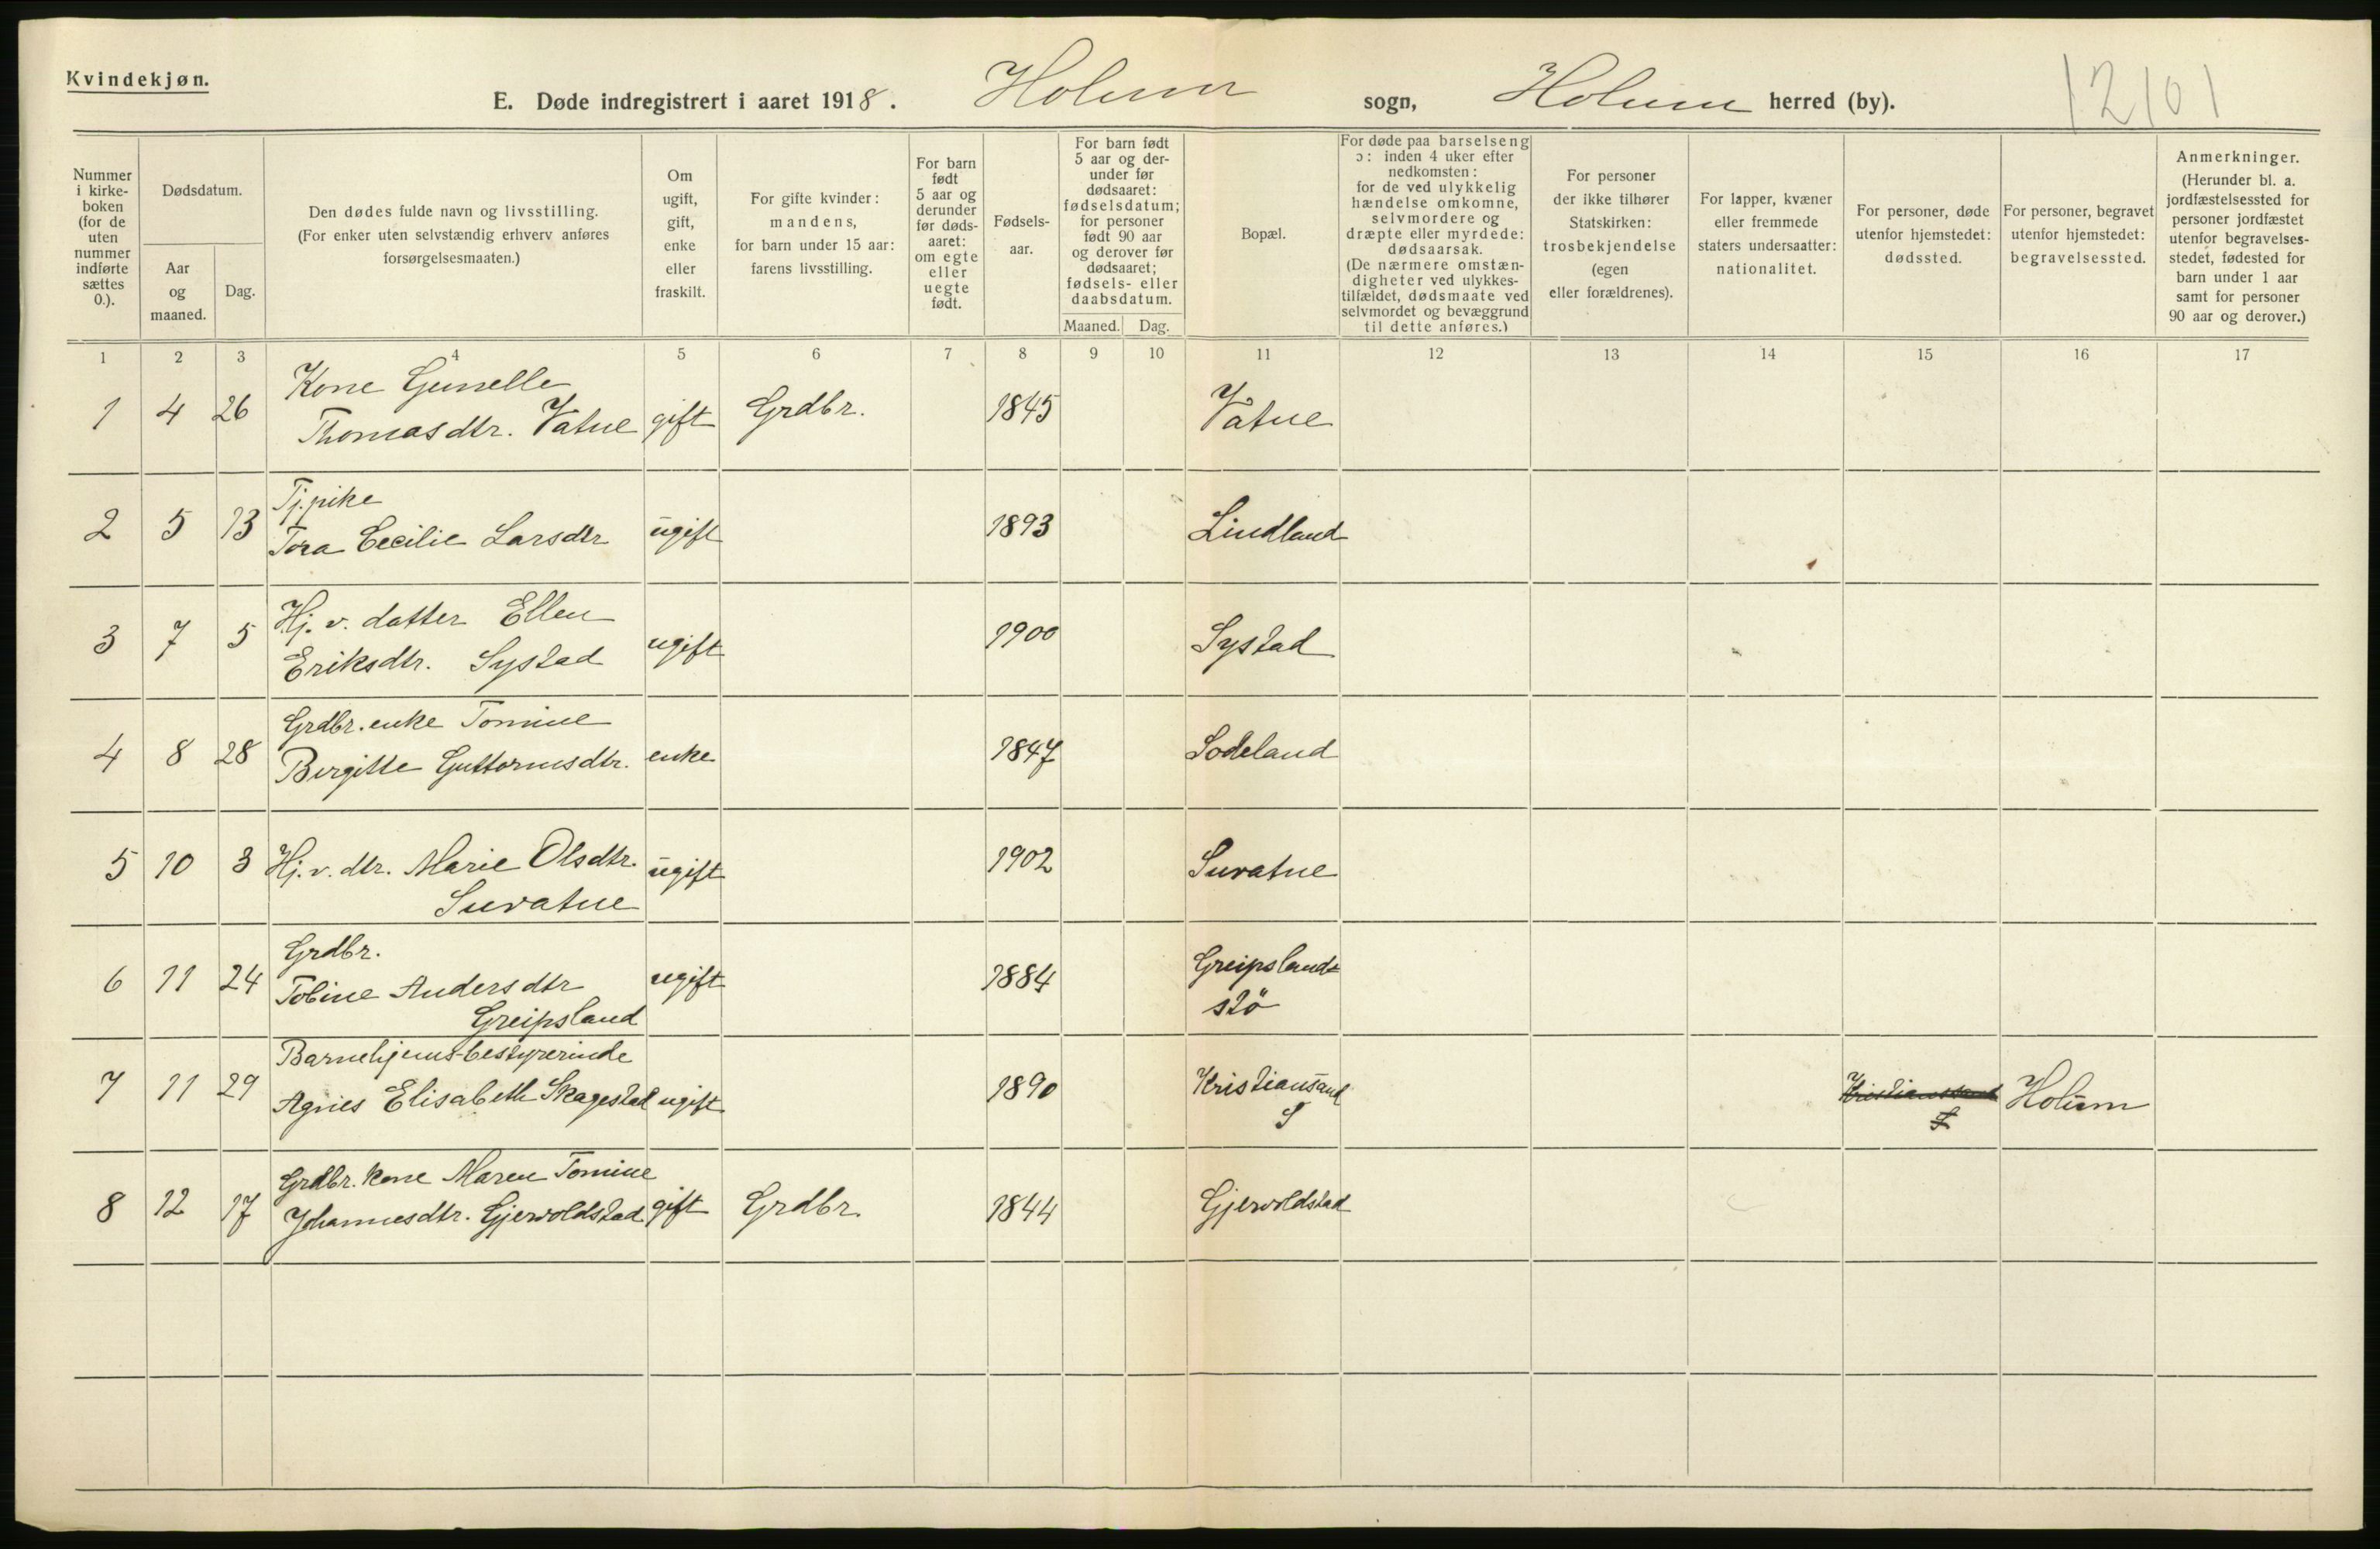 Kvindekjøn.
E. Døde indregistrert i aaret 1918. Holum sogn, Holum herred (by).
12101
Nummer i kirke- boken (for de uten nummer indførte sættes 0.).
Dødsdatum.
Aar og maaned.
Dag.
Den dødes fulde navn og livsstilling.
(For enker uten selvstændig erhverv anføres
forsørgelsesmaaten.)
Om ugift, gift, enke eller fraskilt.
For gifte kvinder: mandens, for barn under 15 aar: farens livsstilling.
For barn født 5 aar og derunder før døds- aaret: om egte eller uegte født.
Fødsels- aar.
For barn født 5 aar og der- under før dødsaaret: fødselsdatum; for personer født 90 aar og derover før dødsaaret; fødsels- eller daabsdatum.
Maaned. Dag.
Bopæl.
For døde paa barselseng ɔ: inden 4 uker efter nedkomsten: for de ved ulykkelig hændelse omkomne, selvmordere og dræpte eller myrdede: dødsaarsak. (De nærmere omstæn- digheter ved ulykkes- tilfældet, dødsmaate ved selvmordet og bevæggrund til dette anføres.)
For personer der ikke tilhører Statskirken: trosbekjendelse (egen eller forældrenes).
For lapper, kvæner eller fremmede staters undersaatter: nationalitet.
For personer, døde utenfor hjemstedet: dødssted.
For personer, begravet utenfor hjemstedet: begravelsessted.
Anmerkninger. (Herunder bl. a. jordfæstelsessted for personer jordfæstet utenfor begravelses- stedet, fødested for barn under 1 aar samt for personer 90 aar og derover.)
1 2 3 4 5 6 7 8 9 10 11 12 13 14 15 16 17
Kone Gunelle
1 4 26 Thomasdtr. Vatne gift Grdbr. 1845 Vatne
Tj.pike
2 5 13 Tora Cecilie Larsdtr ugift 1893 Lindland
Hj. v. datter Ellen
3 7 5 Eriksdtr. Systad ugift 1900 Systad
Grdbr. enke Tomine
4 8 28 Birgitte Guttormsdtr. enke 1847 Sodeland
5 10 3 Hj. v. dtr. Marie Olsdtr. ugift 1902 Suvatne
Suvatne
Grdbr.
6 11 24 Tobine Andersdtr ugift 1884 Greipslands
Greipsland stö
Barnehjems-bestyrerinde
7 11 29 Agnes Elisabeth Skagestad ugift 1890 Kristiansand Kristianssand Holum
S S
Grdbr. kone Maren Tomine
8 12 17 Johannesdtr. Gjervoldstad gift Grdbr. 1844 Gjervoldstad